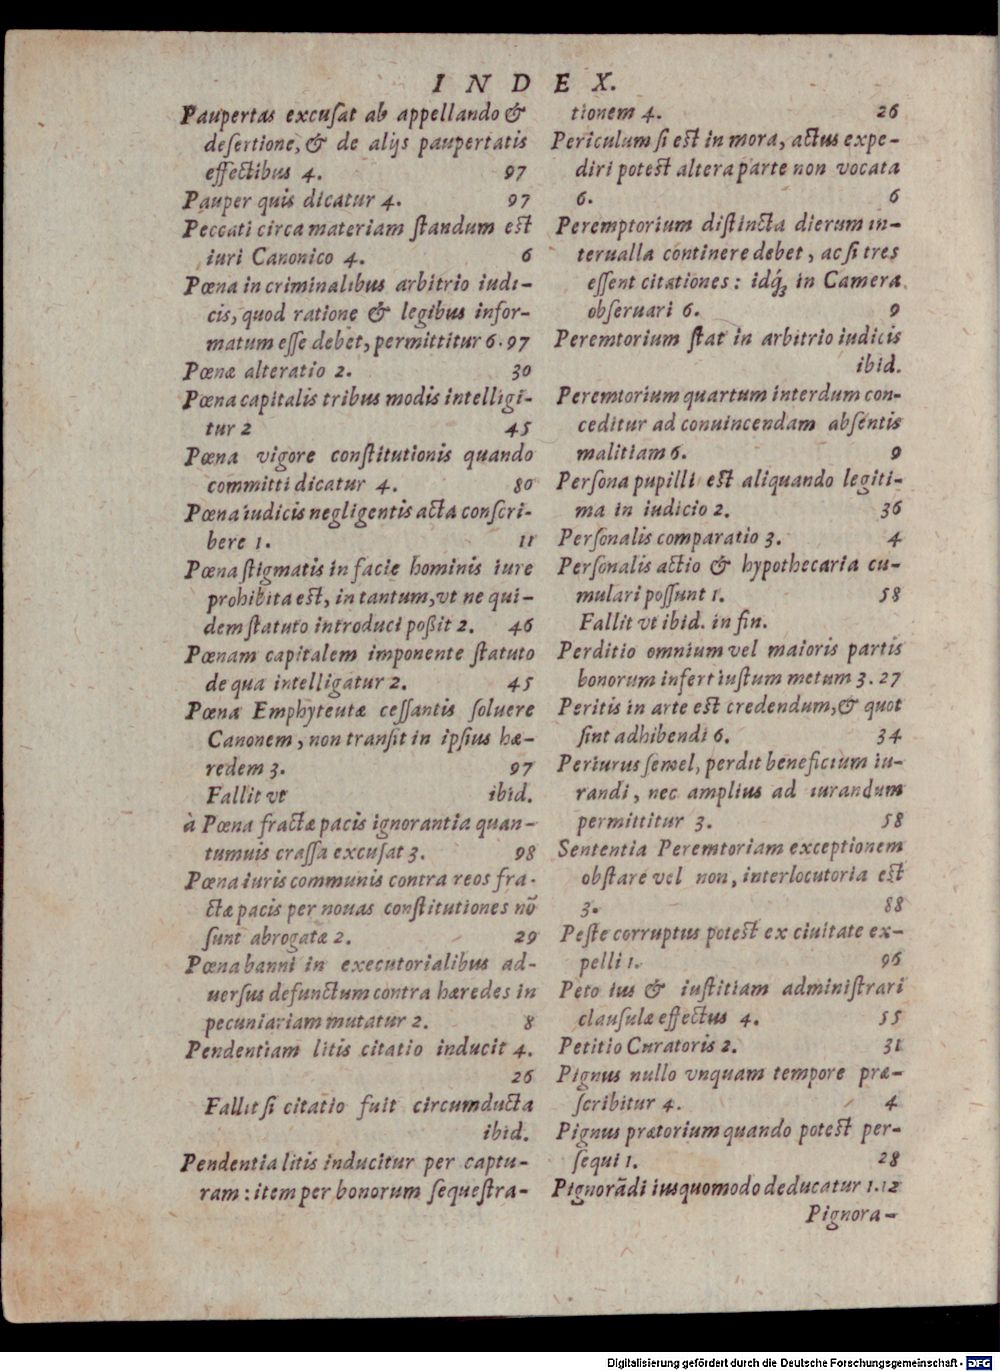 INDEX.
Paupertas excuſat ab appellando &
deſertione, & de alijs paupertatis
effectibus 4. 97
Pauper quis dicatur 4. 97
Peccati circa materiam ſtandum est
iuri Canonico 4. 6
Pœna in criminalibus arbitrio iudi-
cis, quod ratione & legibus infor-
matum eſſe debet, permittitur 6. 97
Pœnæ alteratio 2. 30
Pœna capitalis tribus modis intelligi-
tur 2 45
Pœna vigore conſtitutionis quando
committi dicatur 4. 80
Pœna iudicis negligentis acta conſcri-
bere 1. 11
Pœna ſtigmatis in facie hominis iure
prohibita est, in tantum, vt ne qui-
dem ſtatuto introduci poßit 2. 46
Pœnam capitalem imponente ſtatuto
de qua intelligatur 2. 45
Pœna Emphyteutæ ceſſantis ſoluere
Canonem, non tranſit in ipſius hæ-
redem 3. 97
Fallit vt ibid.
à Pœna fractæ pacis ignorantia quan-
tumuis craſſa excuſat 3. 98
Pœna iuris communis contra reos fra-
ctæ pacis per nouas conſtitutiones nõ
ſunt abrogatæ 2. 29
Pœna banni in executorialibus ad-
uerſus defunctum contra hæredes in
pecuniariam mutatur 2. 8
Pendentiam litis citatio inducit 4.
26
Fallit ſi citatio fuit circumducta
ibid.
Pendentia litis inducitur per captu-
ram: item per bonorum ſequeſtra-
tionem 4. 26
Periculum ſi est in mora, actus expe-
diri potest altera parte non vocata
6. 6
Peremptorium diſtincta dierum in-
terualla continere debet, ac ſi tres
eſſent citationes: idq́ꝫ in Camera
obſeruari 6. 9
Peremtorium ſtat in arbitrio iudicis
ibid.
Peremtorium quartum interdum con-
ceditur ad conuincendam abſentis
malitiam 6. 9
Perſona pupilli est aliquando legiti-
ma in iudicio 2. 36
Perſonalis comparatio 3. 4
Perſonalis actio & hypothecaria cu-
mulari poſſunt 1. 58
Fallit vt ibid. in fin.
Perditio omnium vel maioris partis
bonorum infert iuſtum metum 3. 27
Peritis in arte est credendum, & quot
ſint adhibendi 6. 34
Periurus ſemel, perdit beneficium iu-
randi, nec amplius ad iurandum
permittitur 3. 58
Sententia Peremtoriam exceptionem
obſtare vel non, interlocutoria est
3. 88
Peſte corruptus potest ex ciuitate ex-
pelli 1. 96
Peto ius & iuſtitiam adminiſtrari
clauſulæ effectus 4. 55
Petitio Curatoris 2. 31
Pignus nullo vnquam tempore præ-
ſcribitur 4. 4
Pignus prætorium quando potest per-
ſequi 1. 28
Pignorãdi ius quomodo deducatur 1. 12
Pignora-
Digitalisierung gefördert durch die Deutsche Forschungsgemeinschaft - DFG